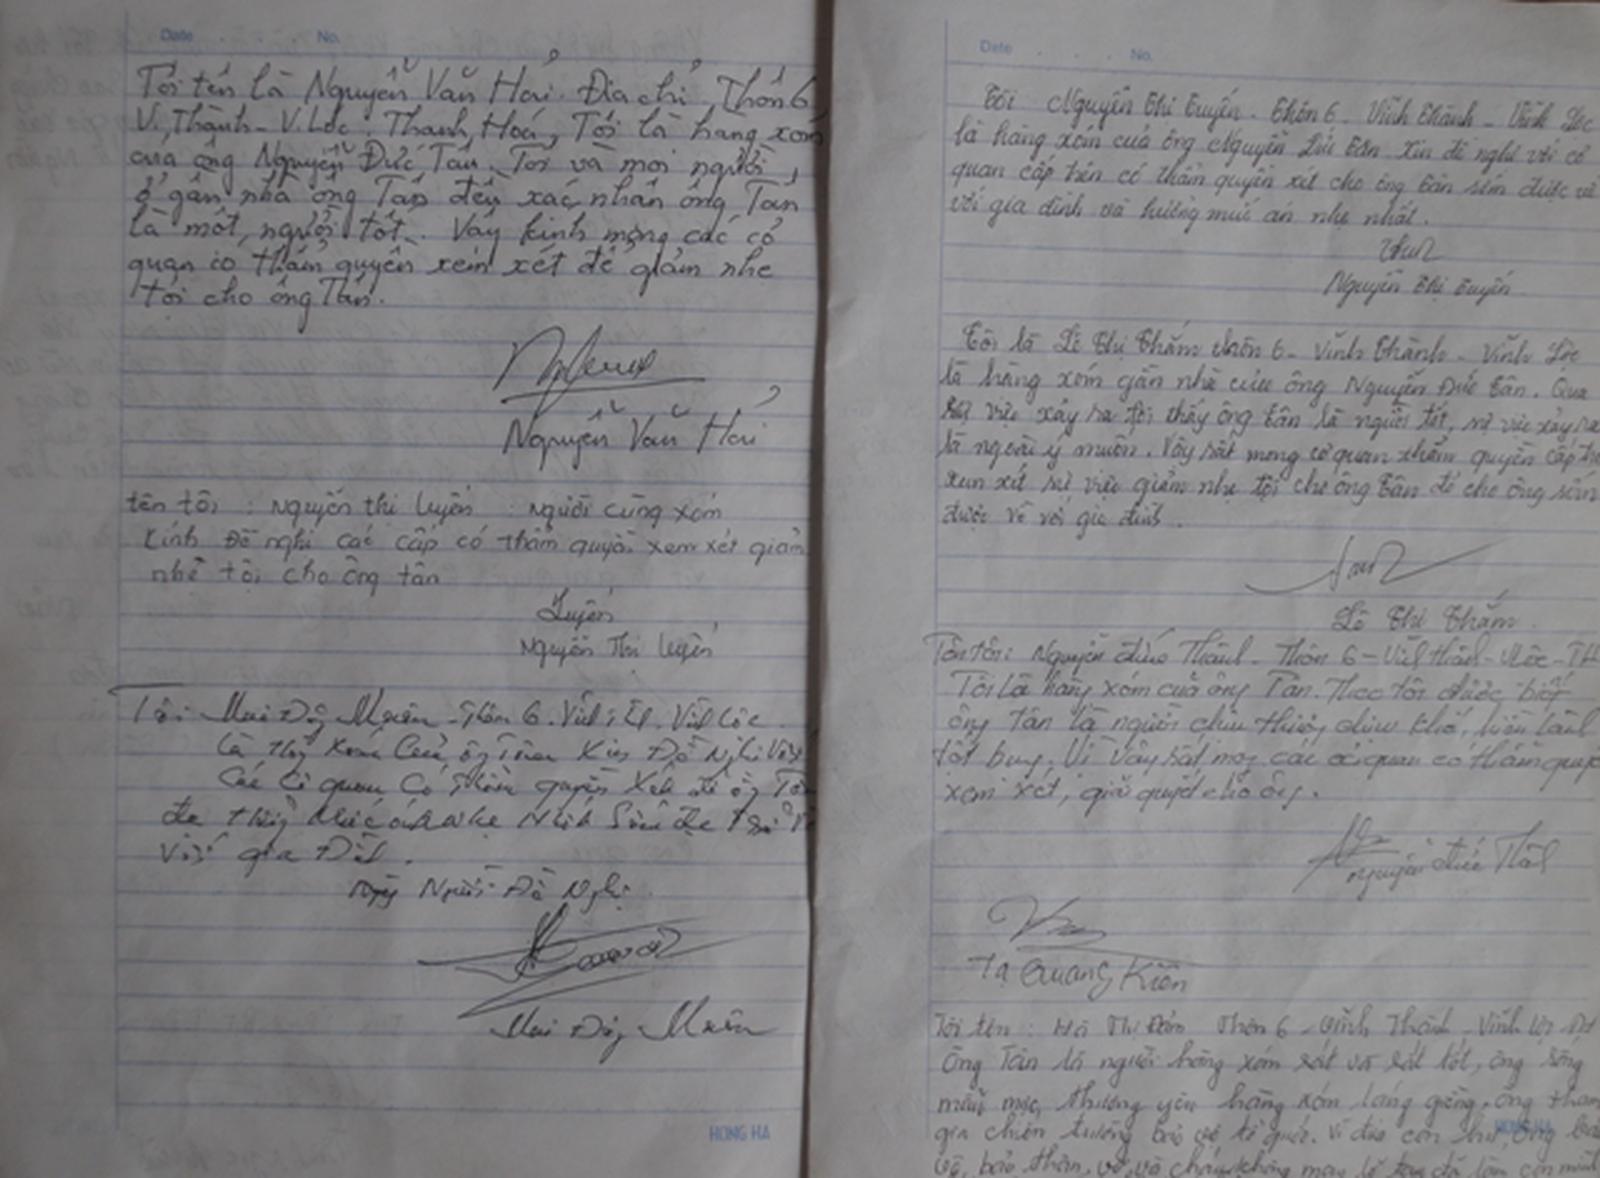 Date . . . No.
Tôi tên là Nguyễn Văn Hải. Địa chỉ, Thôn 6
V. Thành - V. Lộc. Thanh Hoá, Tôi là hàng xóm
của ông Nguyễn Đức Tân. Tôi và mọi người
ở gần nhà ông Tân đều xác nhận ông Tân
là một người tốt. Vậy kính mong các cơ
quan có thẩm quyền xem xét để giảm nhẹ
tội cho ông Tân.
Nguyễn Văn Hải
tên tôi : Nguyễn thị Luyến : người cùng xóm
Kính Đề nghị các cấp có thẩm quyền xem xét giảm
nhẹ tội cho ông tân
Luyến
Nguyễn Thị Luyến
Tôi Mai - Thôn 6.
Là Xóm Của ông Xin Đề Nghị Với
Các Cơ quan Có thẩm quyền để ông
Nhất
Với gia Đình.
Người Đề Nghị
Mai
HONG HA
Date . . . No.
Tôi Nguyễn Thị Tuyến. Thôn 6 - Vĩnh Thành - Vĩnh Lộc
là hàng xóm của ông Nguyễn Đức Tân xin đề nghị với cơ
quan cấp trên có thẩm quyền xét cho ông Tân sớm được về
với gia đình và hưởng mức án nhẹ nhất.
Nguyễn Thị Tuyến
Tôi là Lê Thị Thắm thôn 6 - Vĩnh Thành - Vĩnh Lộc
là hàng xóm gần nhà của ông Nguyễn Đức Tân. Qua
sự việc xảy ra tôi thấy ông Tân là người tốt, sự việc xảy ra
là ngoài ý muốn. Vậy rất mong cơ quan thẩm quyền cấp
xem xét sự việc giảm nhẹ tội cho ông Tân để cho ông sớm
được về với gia đình.
Lê Thị Thắm
Tên tôi: Nguyễn đức Thành - Thôn 6 - Vĩnh thành - V Lộc - TH
Tôi là hàng xóm của ông Tân. Theo tôi được biết
ông tân là người chịu thương chịu khó, hiền lành
tốt bụng. Vì vậy rất mong các cơ quan có thẩm quyền
xem xét, giải quyết cho ông.
Nguyễn đức Thành
Tạ Quang Kiên
Tôi tên : Hà Thị Thôn 6 - Vĩnh Thành - Vĩnh Lộc - TH
Ông Tân là người hàng xóm rất và rất tốt, ông sống
mẫu mực, thương yêu hàng xóm láng giềng. Ông tham
gia chiến trường bảo vệ tổ quốc. Vì đứa con hư, ông
vệ, bảo thân, vợ, và cháu, không may
HONG HA